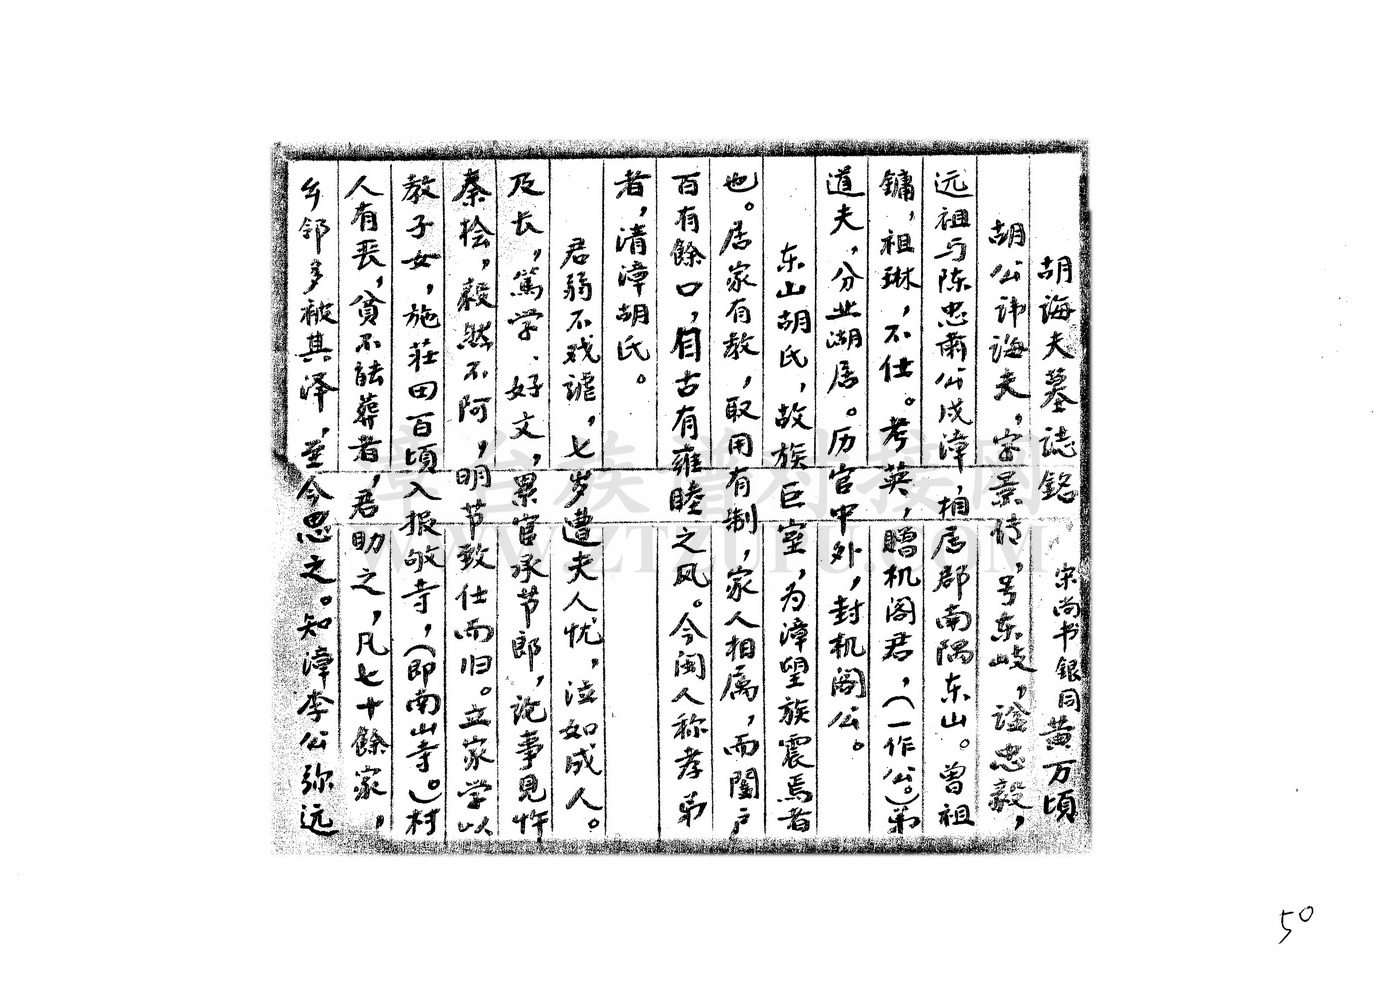 胡海夫墓誌銘 宋尚书银同黄万頃
胡公讳海夫，字景傅，号东岐，謚忠毅，
远祖与陈忠肃公戍漳，相居郡南隅东山。曾祖
鏞，祖琳，不仕。考英，贈机阁君，（一作公。）弟
道夫，分业湖居。历官中外，封机阁公。
东山胡氏，故族巨室，为漳望族震焉者
也。居家有教，取用有制，家人相属，而闔户
百有餘口，自古有雍睦之风。今闽人称孝弟
者，清漳胡氏。
君弱不戏謔，七岁遭夫人忧，泣如成人。
及长，篤学、好文，累官承节郎，论事見忤
秦桧，毅然不阿，明节致仕而旧。立家学以
教子女，施莊田百頃入报敬寺，（即南山寺。）村
人有丧，貧不能葬者，君助之，凡七十餘家，
乡邻多被其泽，至今思之。知漳李公弥远
章台族谱对接网
WWW.ZTZUPU.COM
50